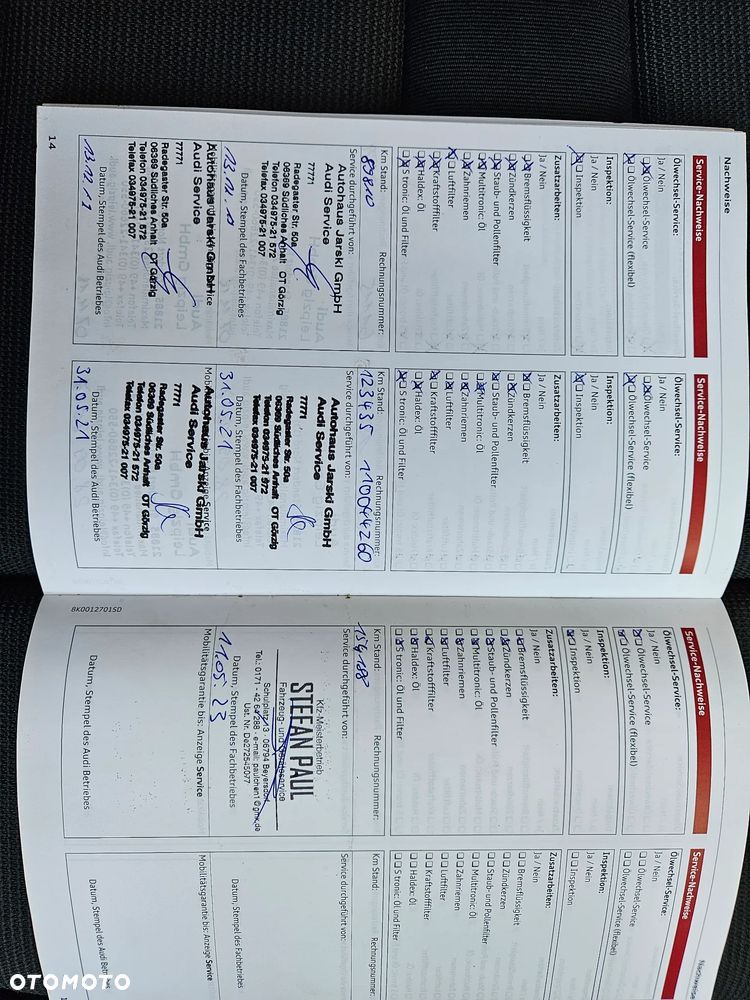 Nachweise
Service-Nachweise
Ölwechsel-Service:
Ja / Nein
Ölwechsel-Service
Ölwechsel-Service (flexibel)
Inspektion:
Ja / Nein
Inspektion
Zusatzarbeiten:
Ja / Nein
Bremsflüssigkeit
Zündkerzen
Staub- und Pollenfilter
Multitronic: Öl
Zahnriemen
Luftfilter
Kraftstofffilter
Haldex: Öl
S tronic: Öl und Filter
Km Stand:
Rechnungsnummer:
Service durchgeführt von:
Autohaus Jarski GmbH
Audi Service
77771
Radegaster Str. 50a
06369 Südliches Anhalt OT Görzig
Telefon 034975-21 572
Telefax 034975-21 007
Datum, Stempel des Fachbetriebes
Autohaus Jarski GmbH
Audi Service
77771
Radegaster Str. 50a
06369 Südliches Anhalt OT Görzig
Telefon 034975-21 572
Telefax 034975-21 007
Datum, Stempel des Audi Betriebes
14
Service-Nachweise
Ölwechsel-Service:
Ja / Nein
Ölwechsel-Service
Ölwechsel-Service (flexibel)
Inspektion:
Ja / Nein
Inspektion
Zusatzarbeiten:
Ja / Nein
Bremsflüssigkeit
Zündkerzen
Staub- und Pollenfilter
Multitronic: Öl
Zahnriemen
Luftfilter
Kraftstofffilter
Haldex: Öl
S tronic: Öl und Filter
Km Stand:
Rechnungsnummer:
123435 110044260
Service durchgeführt von:
Autohaus Jarski GmbH
Audi Service
77771
Radegaster Str. 50a
06369 Südliches Anhalt OT Görzig
Telefon 034975-21 572
Telefax 034975-21 007
31.05.21
Datum, Stempel des Fachbetriebes
Autohaus Jarski GmbH
Audi Service
77771
Radegaster Str. 50a
06369 Südliches Anhalt OT Görzig
Telefon 034975-21 572
Telefax 034975-21 007
31.05.21
Datum, Stempel des Audi Betriebes
8K0012701SD
Service-Nachweise
Ölwechsel-Service:
Ja / Nein
Ölwechsel-Service
Ölwechsel-Service (flexibel)
Inspektion:
Ja / Nein
Inspektion
Zusatzarbeiten:
Ja / Nein
Bremsflüssigkeit
Zündkerzen
Staub- und Pollenfilter
Multitronic: Öl
Zahnriemen
Luftfilter
Kraftstofffilter
Haldex: Öl
S tronic: Öl und Filter
Km Stand:
Rechnungsnummer:
Service durchgeführt von:
Kfz-Meisterbetrieb
STEFAN PAUL
Datum, Stempel des Fachbetriebes
11.05.23
Mobilitätsgarantie bis: Anzeige Service
Datum, Stempel des Audi Betriebes
Nachweise
Service-Nachweise
Ölwechsel-Service:
Ja / Nein
Ölwechsel-Service
Ölwechsel-Service (flexibel)
Inspektion:
Ja / Nein
Inspektion
Zusatzarbeiten:
Ja / Nein
Bremsflüssigkeit
Zündkerzen
Staub- und Pollenfilter
Multitronic: Öl
Zahnriemen
Luftfilter
Kraftstofffilter
Haldex: Öl
S tronic: Öl und Filter
Km Stand:
Rechnungsnummer:
Service durchgeführt von:
Datum, Stempel des Fachbetriebes
Mobilitätsgarantie bis: Anzeige Service
Datum, Stempel des Audi Betriebes
OTOMOTO